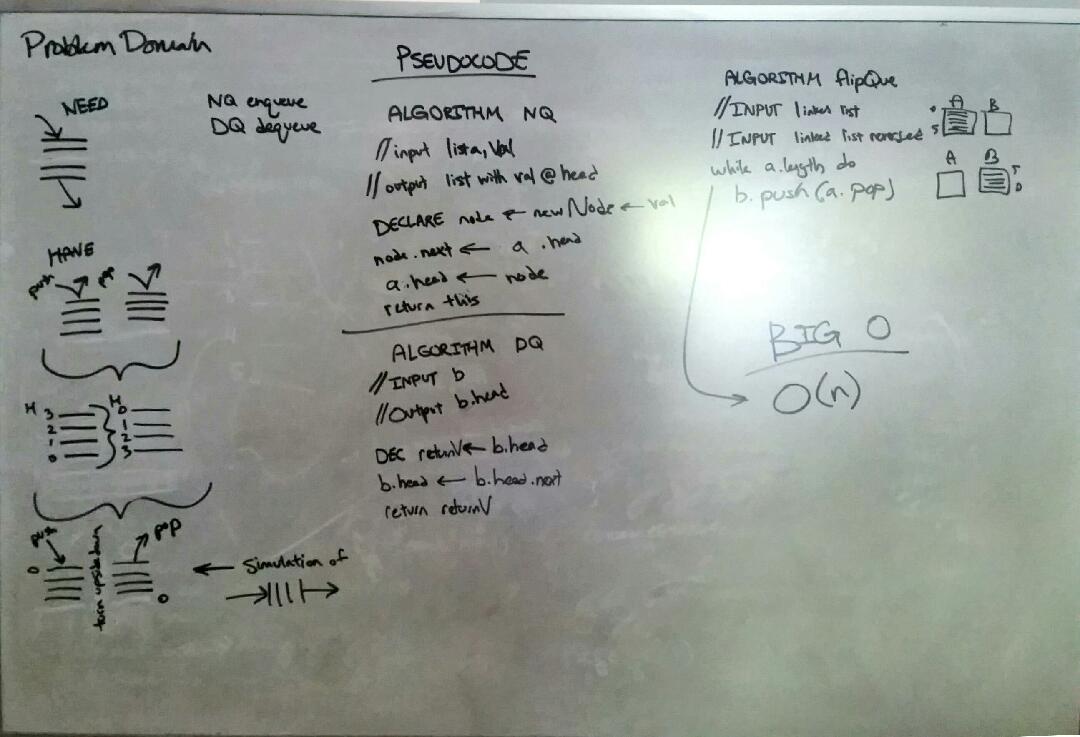 Problem Domain
NEED
NQ enqueue
DQ dequeue
HAVE
push pop
H 3 2 1 0
H 0 1 2 3
push
pop
0
turn upside down
0
Simulation of
PSEUDOCODE
ALGORITHM NQ
//input list a, val
//output list with val @ head
DECLARE node ← new Node ← val
node.next ← a .head
a.head ← node
return this
ALGORITHM DQ
//INPUT b
//Output b.head
DEC returnV ← b.head
b.head ← b.head.next
return returnV
ALGORITHM flipQue
//INPUT linked list
//INPUT linked list reversed
while a.length do
b.push(a.pop)
A B
A B
BIG O
O(n)